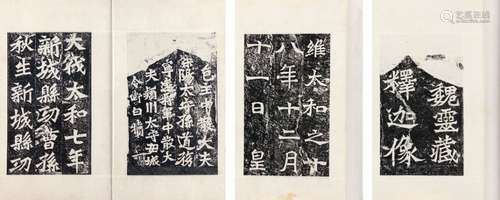 魏靈藏
釋迦像
維太和之十
八年十二月
十一日皇
邑主中散大夫
滎陽太守孫道務
寧遠將軍中散大
夫潁川太守安城
令衛白犢
大代太和七年
新城縣功曹孫
秋生新城縣功